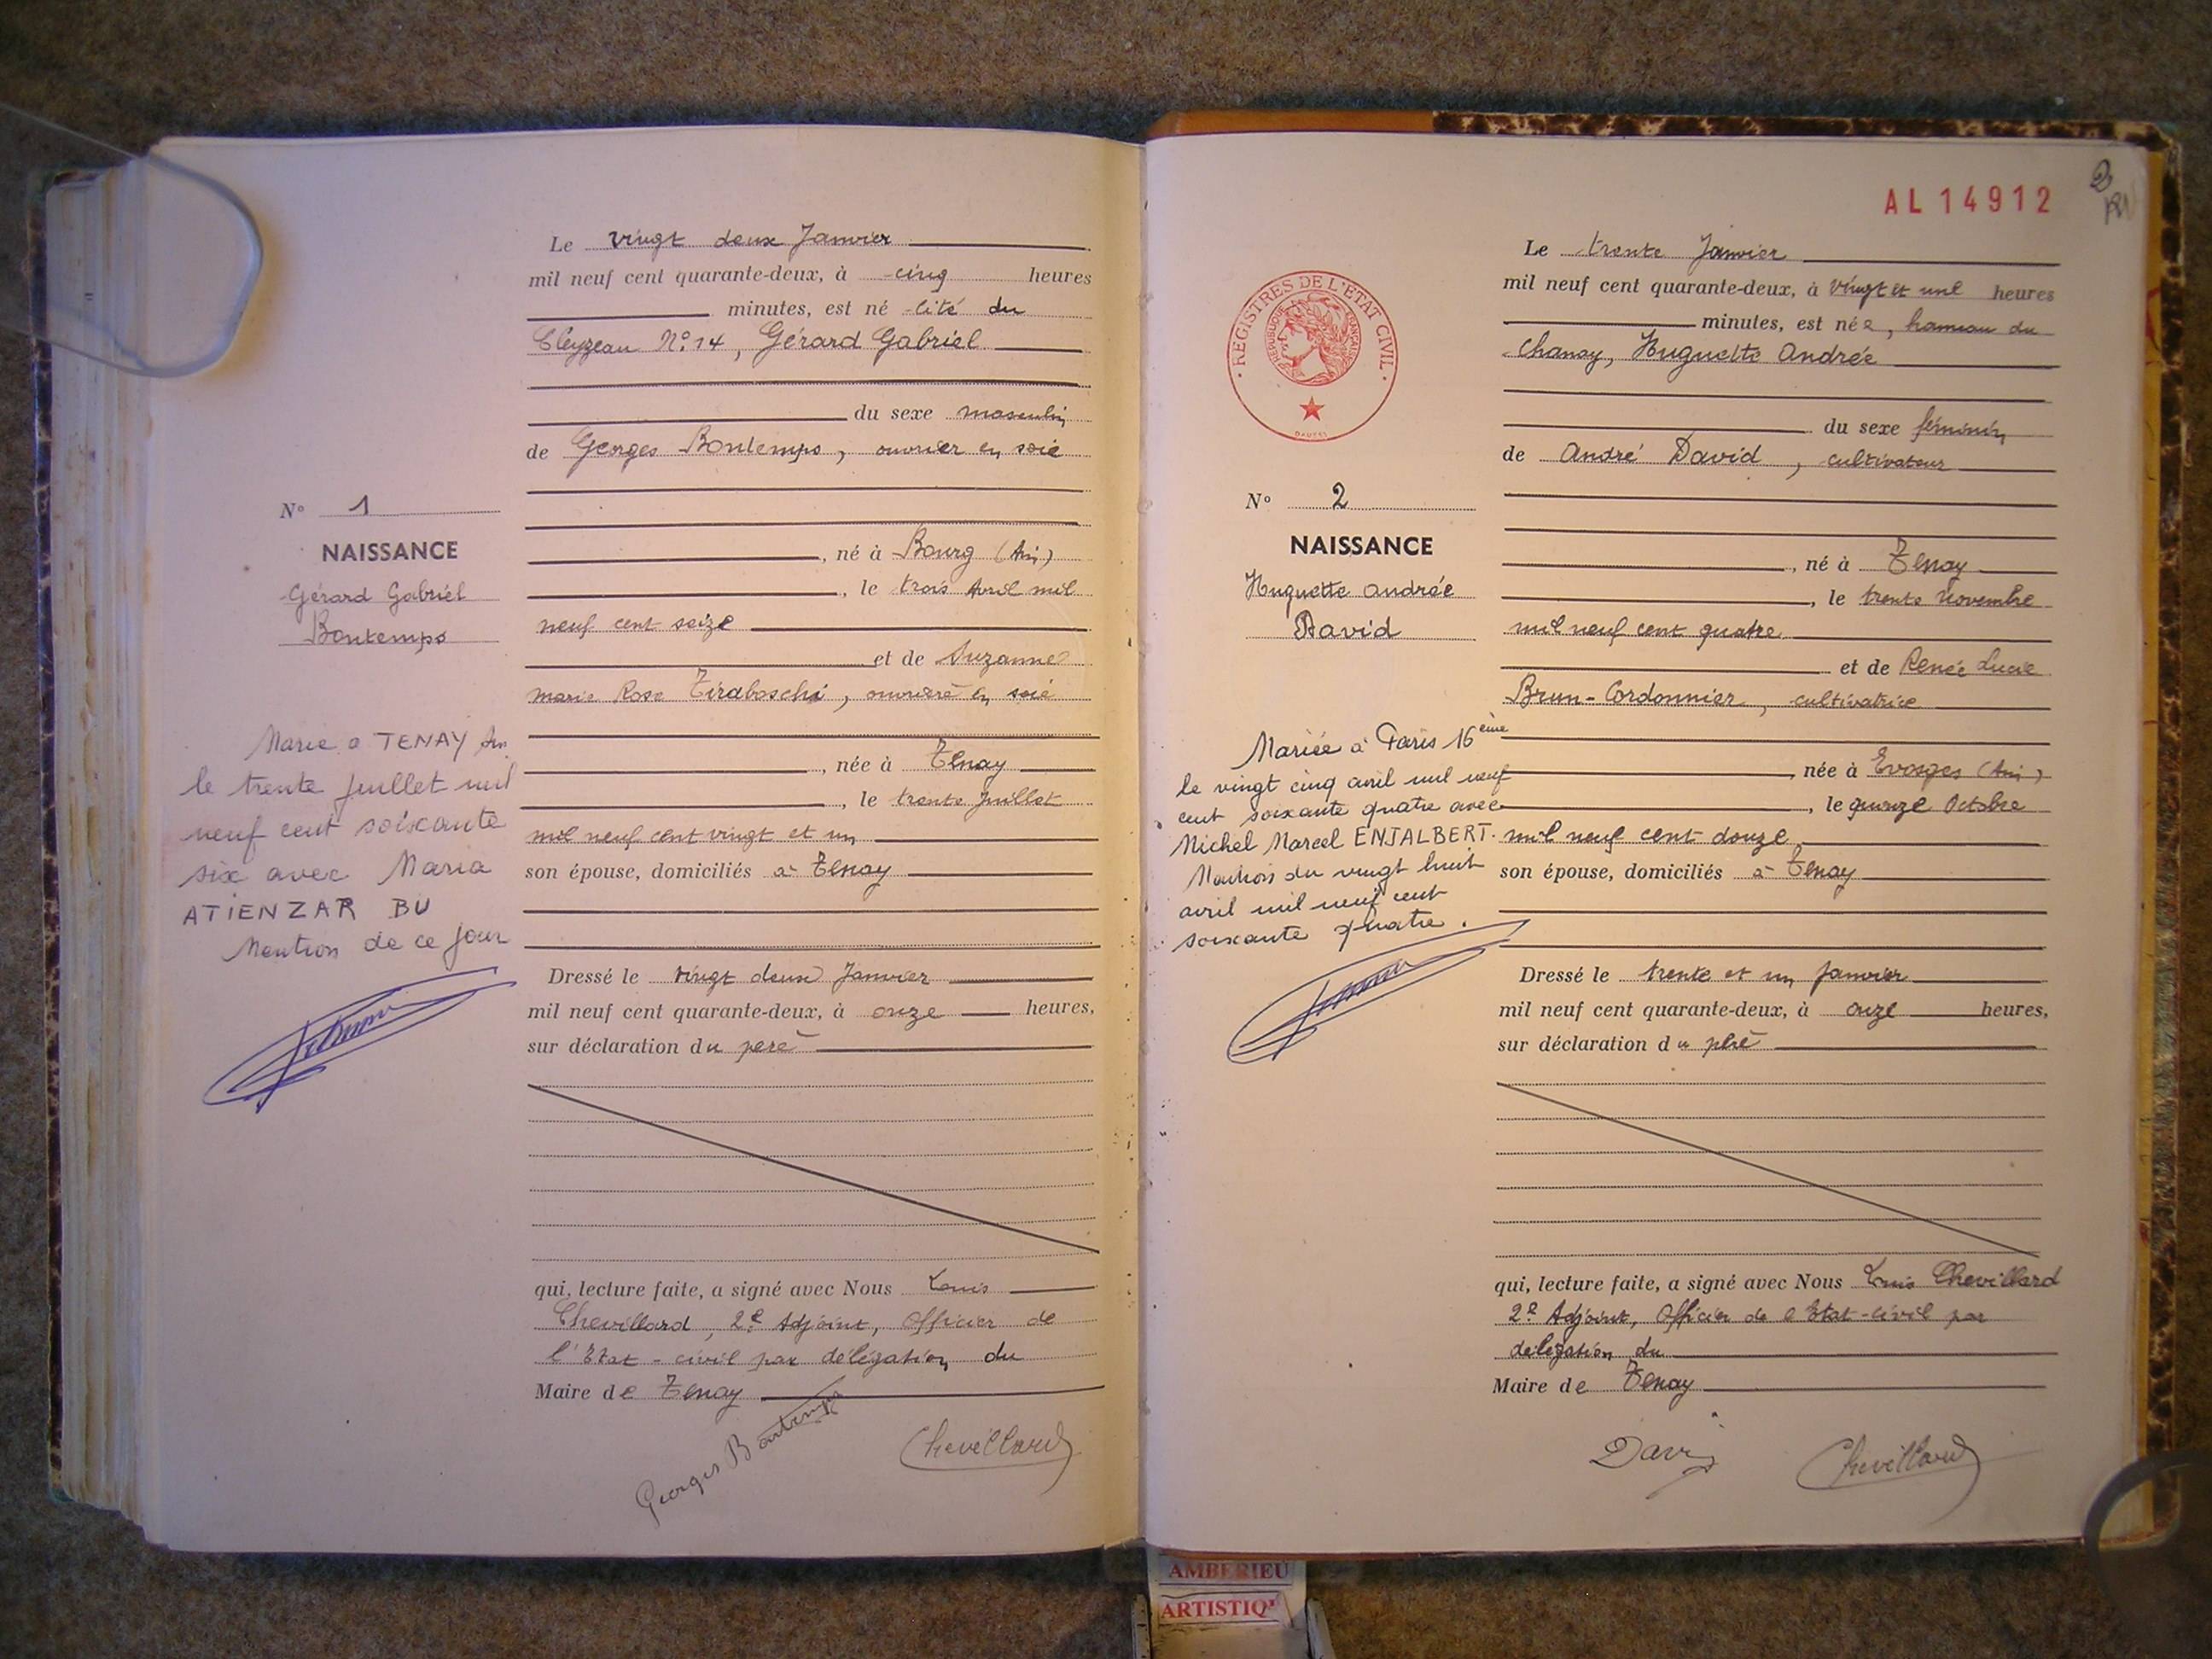 Le vingt deux Janvier
mil neuf cent quarante-deux, à cinq heures
minutes, est né cité du
Cleyzeau N° 14, Gérard Gabriel
du sexe masculin
de Georges Bontemps, ouvrier en soie
N° 1
NAISSANCE
Gérard Gabriel
Bontemps
, né à Bourg (Ain)
, le trois Avril mil
neuf cent seize
et de Suzanne
Marie Rose Tiraboschi, ouvrière en soie
, née à Tenay
, le trente Juillet
mil neuf cent vingt et un
son épouse, domiciliés à Tenay
Marié à TENAY Ain
le trente juillet mil
neuf cent soixante
six avec Maria
ATIENZAR BU
Mention de ce jour
Dressé le vingt deux Janvier
mil neuf cent quarante-deux, à onze heures,
sur déclaration du père
qui, lecture faite, a signé avec Nous Louis
Chevillard, 2e Adjoint, Officier de
l'Etat-civil par délégation du
Maire de Tenay
Georges Bontemps
Chevillard
AL 14912
2
REGISTRES DE L'ETAT CIVIL
REPUBLIQUE FRANÇAISE
Le trente Janvier
mil neuf cent quarante-deux, à vingt et une heures
minutes, est née, hameau du
Chanay, Huguette Andrée
du sexe féminin
de André David, cultivateur
N° 2
NAISSANCE
Huguette Andrée
David
, né à Tenay
, le trente Novembre
mil neuf cent quatre
et de Renée Lucie
Brun-Cordonnier, cultivatrice
, née à Evosges (Ain)
, le quinze Octobre
mil neuf cent douze
son épouse, domiciliés à Tenay
Mariée à Paris 16ème
le vingt cinq avril mil neuf
cent soixante quatre avec
Michel Marcel ENJALBERT.
Mention du vingt huit
avril mil neuf cent
soixante quatre.
Dressé le trente et un janvier
mil neuf cent quarante-deux, à onze heures,
sur déclaration du père
qui, lecture faite, a signé avec Nous Louis Chevillard
2e Adjoint, Officier de l'Etat-civil par
délégation du
Maire de Tenay
David
Chevillard
AMBERIEU
ARTISTIQ